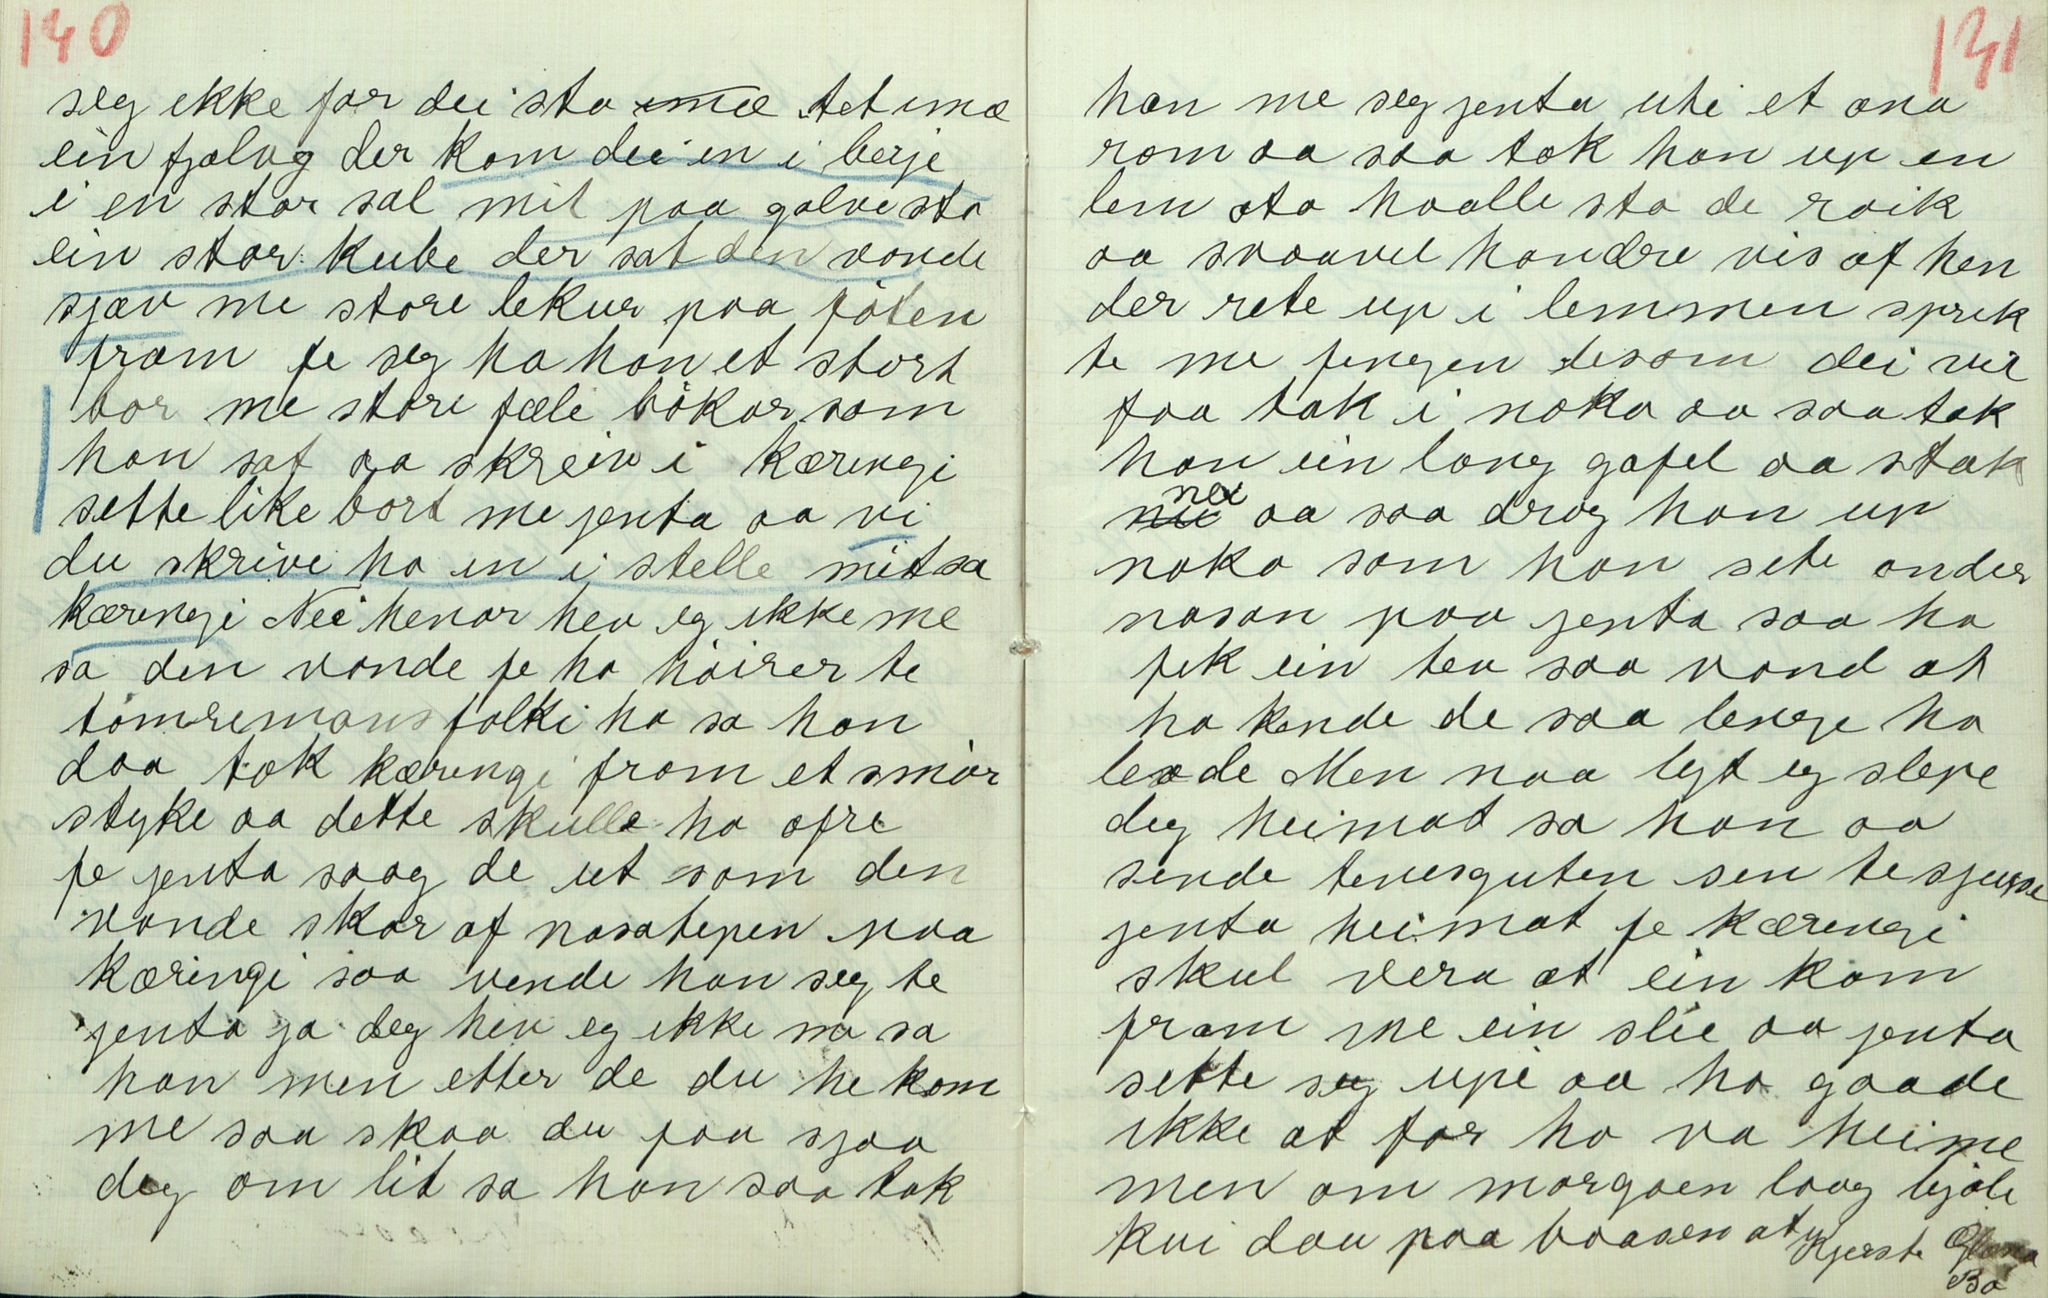 140
seg ikke for dei sto imæ tet imæ
ein fjølvg der kom dei in i berje
i en stor sal mit paa golve sto
ein stor kube der sat den vonde
sjæv me store lekur paa föten
fram fe seg ha han et stort
bor me store fæle bökar som
han sat aa skreiv i kæringi
sette like bort me jenta aa vi
du skrive ho en i stelle mit sa
kæringi Nei henar hev eg ikke me
sa den vonde fe ho höirer te
tömremans folki ho sa han
daa tok kæringi fram et smör
styke aa dette skulle ho ofre
fe jenta saag de ut som den
vonde skar af nasatepen paa
kæringi saa vende han seg te
jenta ja deg hev eg ikke no sa
han men etter de du he kom
me saa skaa du faa sjaa
deg om lit sa han saa tok
141
han me seg jenta uti et ana
rom aa saa tok han up en
lem ota haalle sto de roik
aa svaavel hondre vis af hen
der rete up i lemmen sprik
te me fingen desom dei vil
faa tak i noko aa saa tok
han ein lang gafel aa stak
nei aa saa drog han up
noko som han sete onder
nasan paa jenta saa ho
fik ein tev saa vond at
ho kende de saa lenge ho
levde Men naa lyt eg slepe
deg heimat sa han aa
sende tenesguten sen te sjusse
jenta heimat fe kæringi
skul vera at ein kom
fram me ein slee aa jenta
sette seg upi aa ho gaade
ikke at for ho va heime
men om morgaen laag bjöle
kui dau paa baasen at Kjerste
Bö